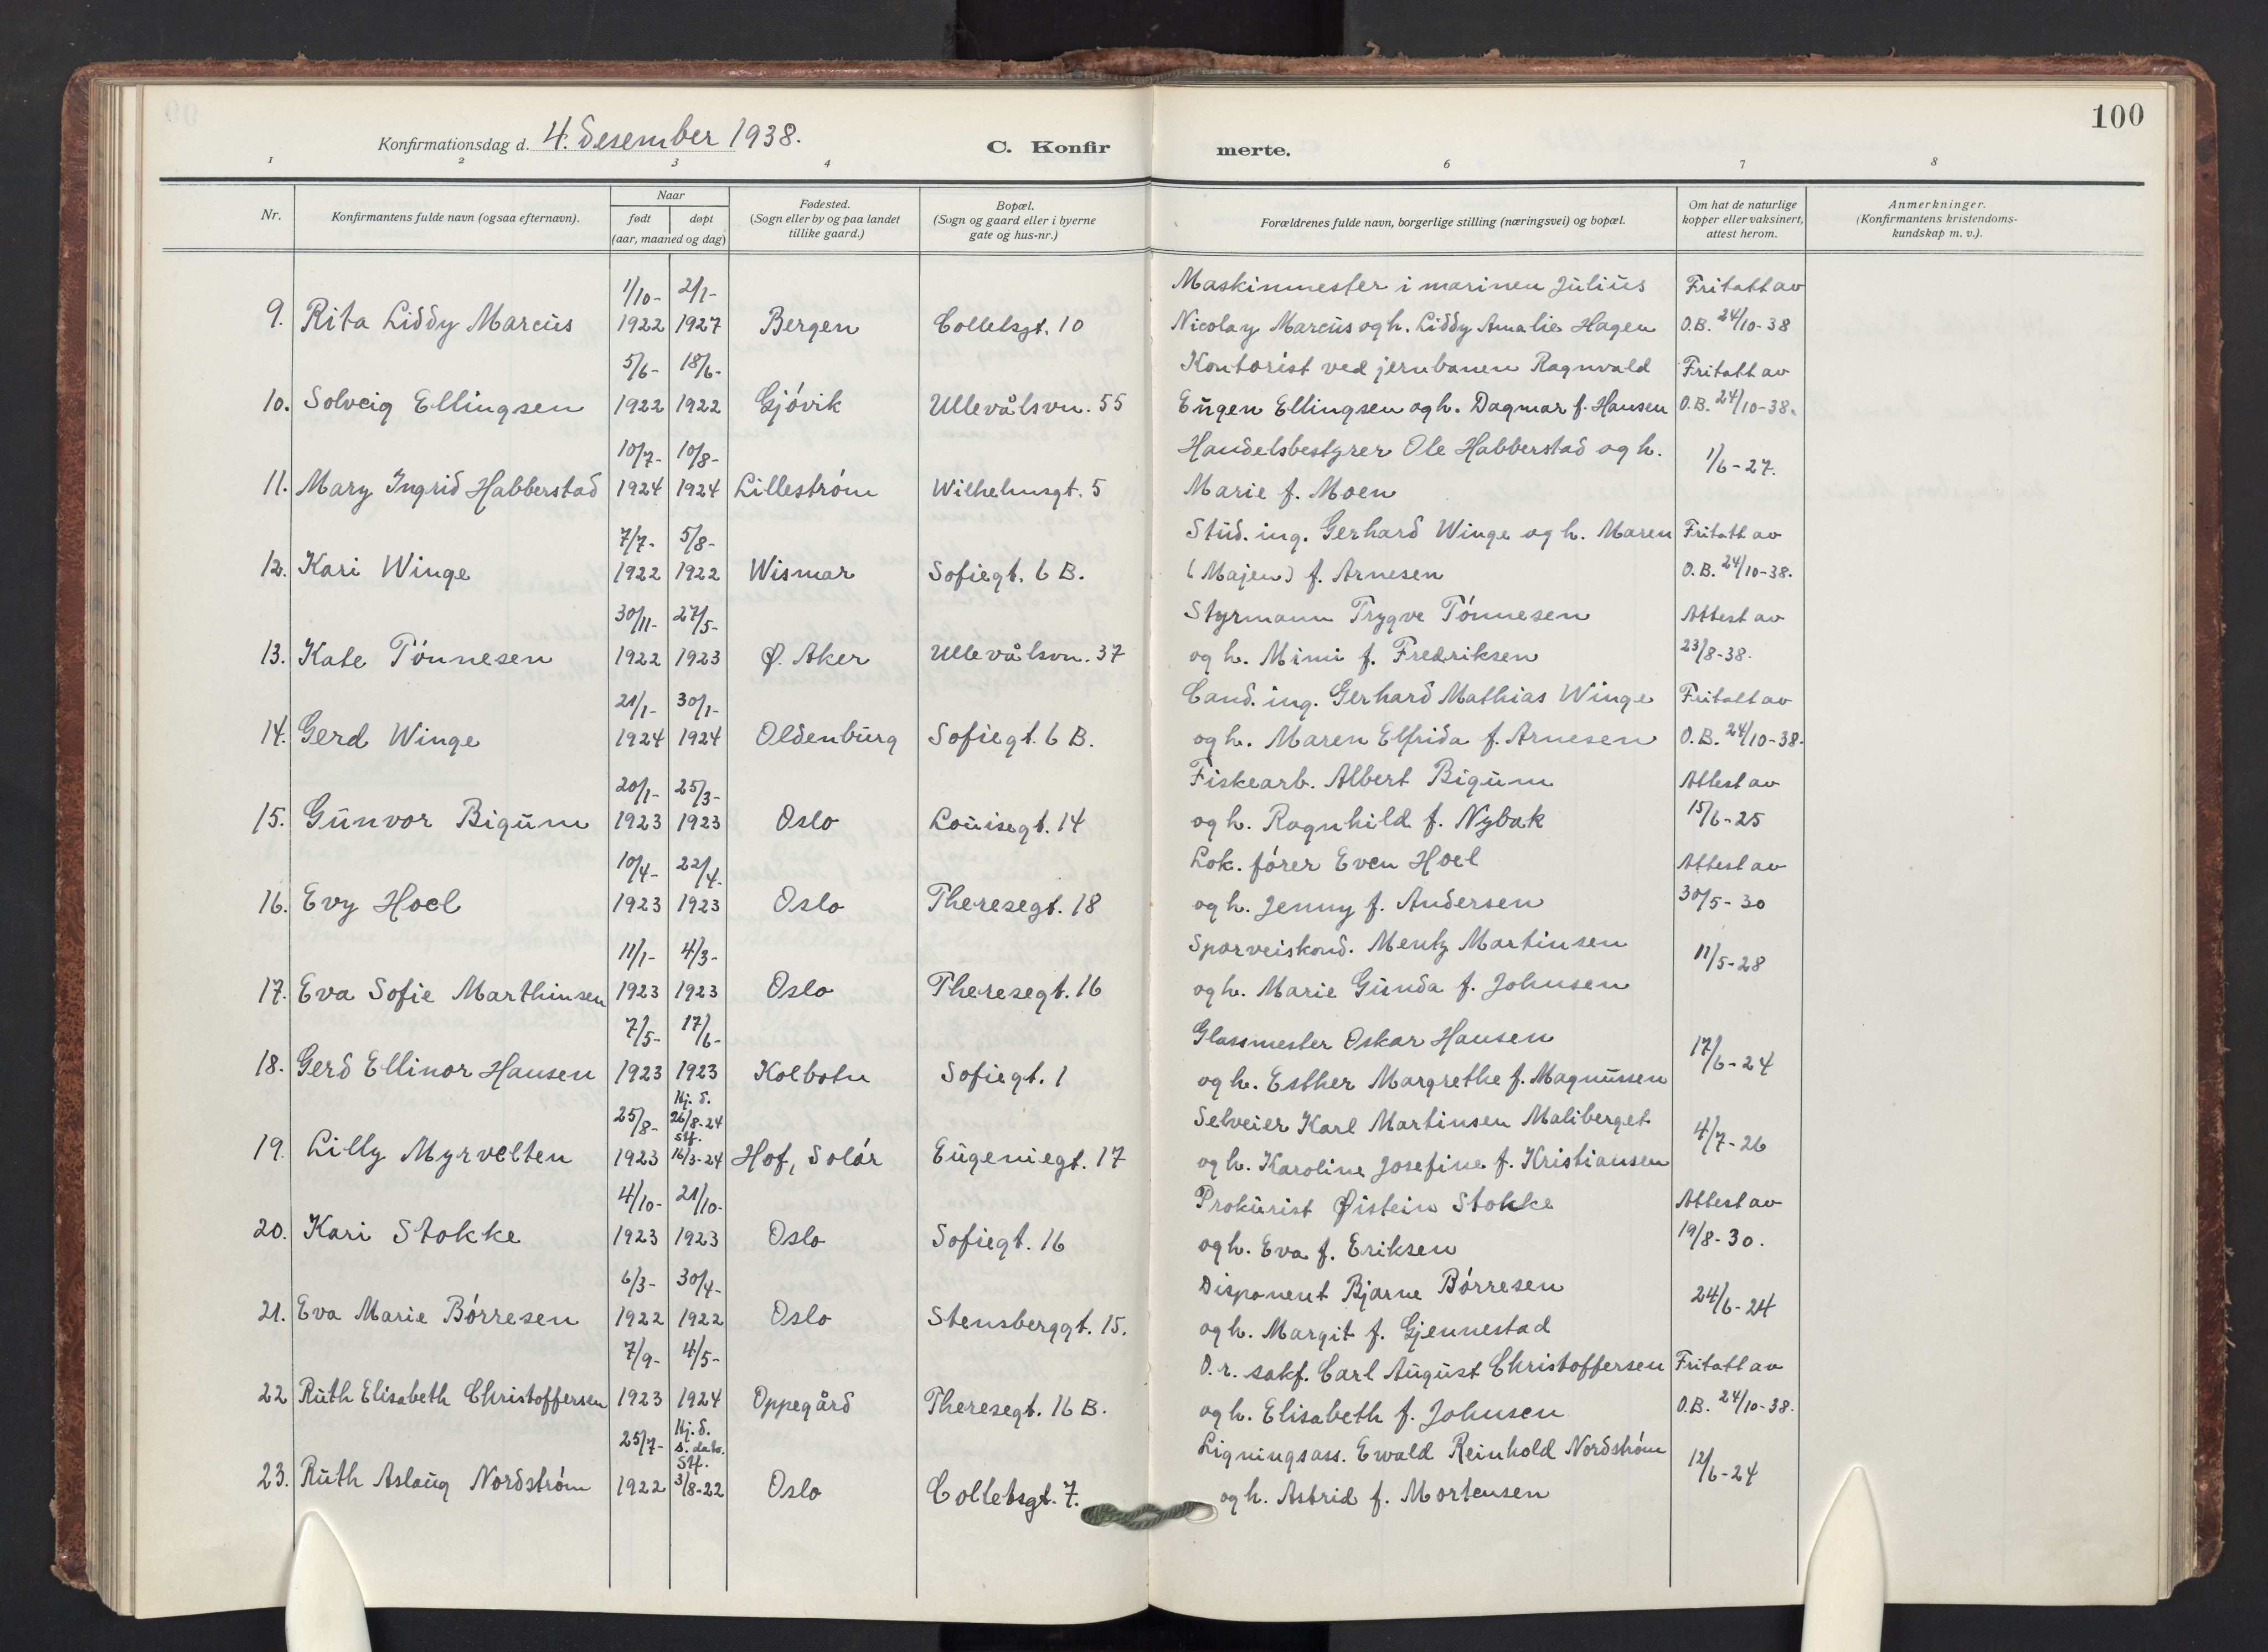 100
Konfirmationsdag d. 4. desember 1938.
C. Konfirmerte.
1 2 3 4 6 7 8
Nr.
Konfirmantens fulde navn (ogsaa efternavn).
Naar
født
døpt
(aar, maaned og dag)
Fødested.
(Sogn eller by og paa landet
tillike gaard.)
Bopæl.
(Sogn og gaard eller i byerne
gate og hus-nr.)
Forældrenes fulde navn, borgerlige stilling (næringsvei) og bopæl.
Om hat de naturlige
kopper eller vaksinert,
attest herom.
Anmerkninger.
(Konfirmantens kristendoms-
kundskap m. v.).
1/10- 2/1- Maskinmester i marinen Julius Fritatt av
9. Rita Liddy Marcus 1922 1927 Bergen Colletsgt. 10 Nicolay Marcus og h. Liddy Amalie Hagen O.B. 24/10-38
5/6- 18/6- Kontorist ved jernbanen Ragnvald Fritatt av
10. Solveig Ellingsen 1922 1922 Gjóvik Ullevålsvn. 55 Eugen Ellingsen og h. Dagmar f. Hansen O.B. 24/10-38.
10/7- 10/8- Handelsbestyrer Ole Habberstad og h. 1/6-27.
11. Mary Ingrid Habberstad 1924 1924 Lillestróm Wilhelmsgt. 5 Marie f. Moen
7/7- 5/8- Stud. ing. Gerhard Winge og h. Maren Fritatt av
12. Kari Winge 1922 1922 Wismar Sofiegt. 6 B. (Majen) f. Arnesen O.B. 24/10-38.
30/11- 27/5- Styrmann Trygve Tónnesen Attest av
13. Kate Tónnesen 1922 1923 Ø. Aker Ullevålsvn. 37 og h. Mimi f. Fredriksen 23/8-38.
21/1- 30/1- Cand. ing. Gerhard Mathias Winge Fritatt av
14. Gerd Winge 1924 1924 Oldenburg Sofiegt. 6 B. og h. Maren Elfrida f. Arnesen O.B. 24/10-38.
20/1- 25/3- Fiskearb. Albert Bigum Attest av
15. Gunvor Bigum 1923 1923 Oslo Louisegt. 14 og h. Ragnhild f. Nybak 15/6-25
10/4- 22/4- Lok. fórer Even Hoel Attest av
16. Evy Hoel 1923 1923 Oslo Theresegt. 18 og h. Jenny f. Andersen 30/5-30
11/1- 4/3- Sporveiskond. Mentz Martinsen 11/5-28
17. Eva Sofie Marthinsen 1923 1923 Oslo Theresegt. 16 og h. Marie Gunda f. Johnsen
7/5- 17/6- Glassmester Oskar Hansen 17/6-24
18. Gerd Ellinor Hansen 1923 1923 Kolbotn Sofiegt. 1 og h. Esther Margrethe f. Magnussen
Hj. d.
25/8- 26/8-24 Selveier Karl Martinsen Maliberget 4/7-26
Stf.
19. Lilly Myrvelten 1923 16/3-24 Hof, Solór Eugeniegt. 17 og h. Karoline Josefine f. Kristiansen
4/10- 21/10- Prokurist Øistein Stokke Attest av
20. Kari Stokke 1923 1923 Oslo Sofiegt. 16 og h. Eva f. Eriksen 19/8-30.
6/3- 30/4- Disponent Bjarne Bórresen 24/6-24
21. Eva Marie Bórresen 1922 1922 Oslo Stensberggt. 15. og h. Margit f. Gjennestad
7/9- 4/5- O.r. sakf. Carl August Christoffersen Fritatt av
22 Ruth Elisabeth Christoffersen 1923 1924 Oppegård Theresegt. 16 B. og h. Elisabeth f. Johnsen O.B. 24/10-38.
Hj. d.
25/7- s. dato. Ligningsass. Ewald Reinhold Nordstróm 12/6-24
Stf.
23. Ruth Aslaug Nordstróm 1922 3/8-22 Oslo Colletsgt. 7. og h. Astrid f. Mortensen